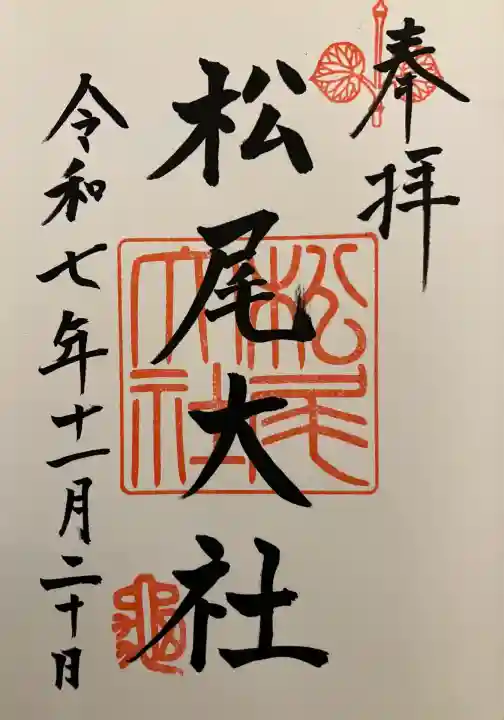 奉拝
松尾大社
松尾大社
令和七年十一月二十日